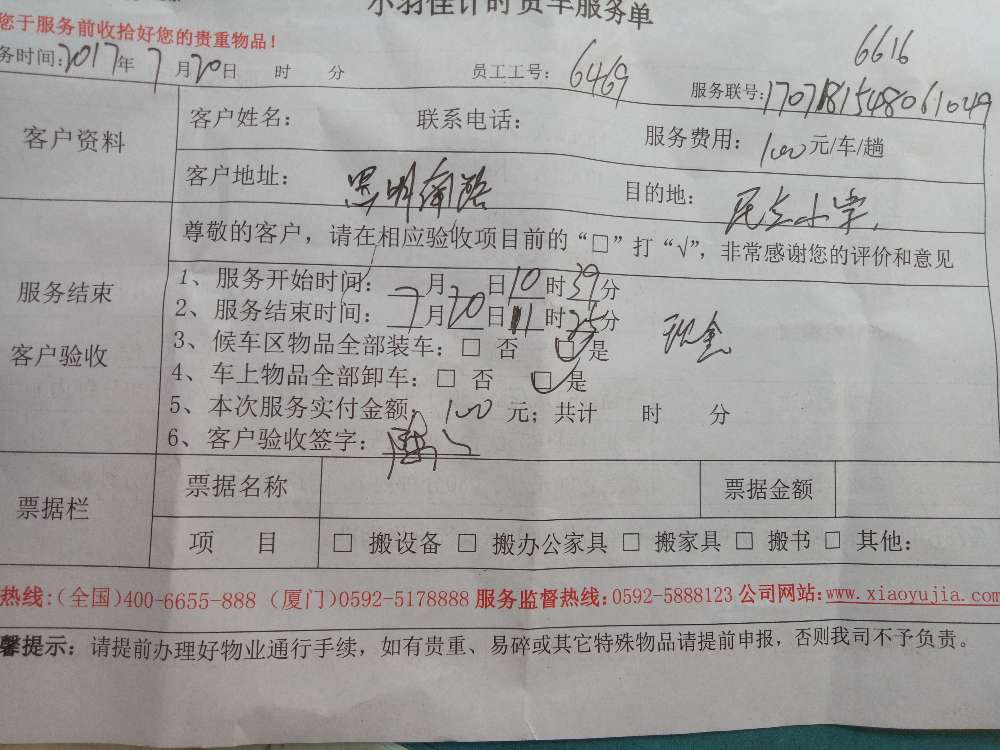 小羽佳计时货车服务单
您于服务前收拾好您的贵重物品!
6616
务时间:2017年7月20日 时 分 员工工号: 6469 服务联号:170718154806 1049
客户资料 客户姓名: 联系电话: 服务费用: 100元/车/趟
客户地址: 思明南路 目的地: 民立小学
尊敬的客户，请在相应验收项目前的“□”打“√”，非常感谢您的评价和意见
服务结束
客户验收
1、服务开始时间: 月 日10时39分
2、服务结束时间: 7月20日11时25分
现金
3、候车区物品全部装车: □ 否 □ 是
4、车上物品全部卸车: □ 否 □ 是
5、本次服务实付金额: 100 元; 共计 时 分
6、客户验收签字:
票据栏 票据名称 票据金额
项 目 □ 搬设备 □ 搬办公家具 □ 搬家具 □ 搬书 □ 其他:
热线:(全国)400-6655-888 (厦门)0592-5178888 服务监督热线:0592-5888123 公司网站:www.xiaoyujia.com
馨提示: 请提前办理好物业通行手续，如有贵重、易碎或其它特殊物品请提前申报，否则我司不予负责。